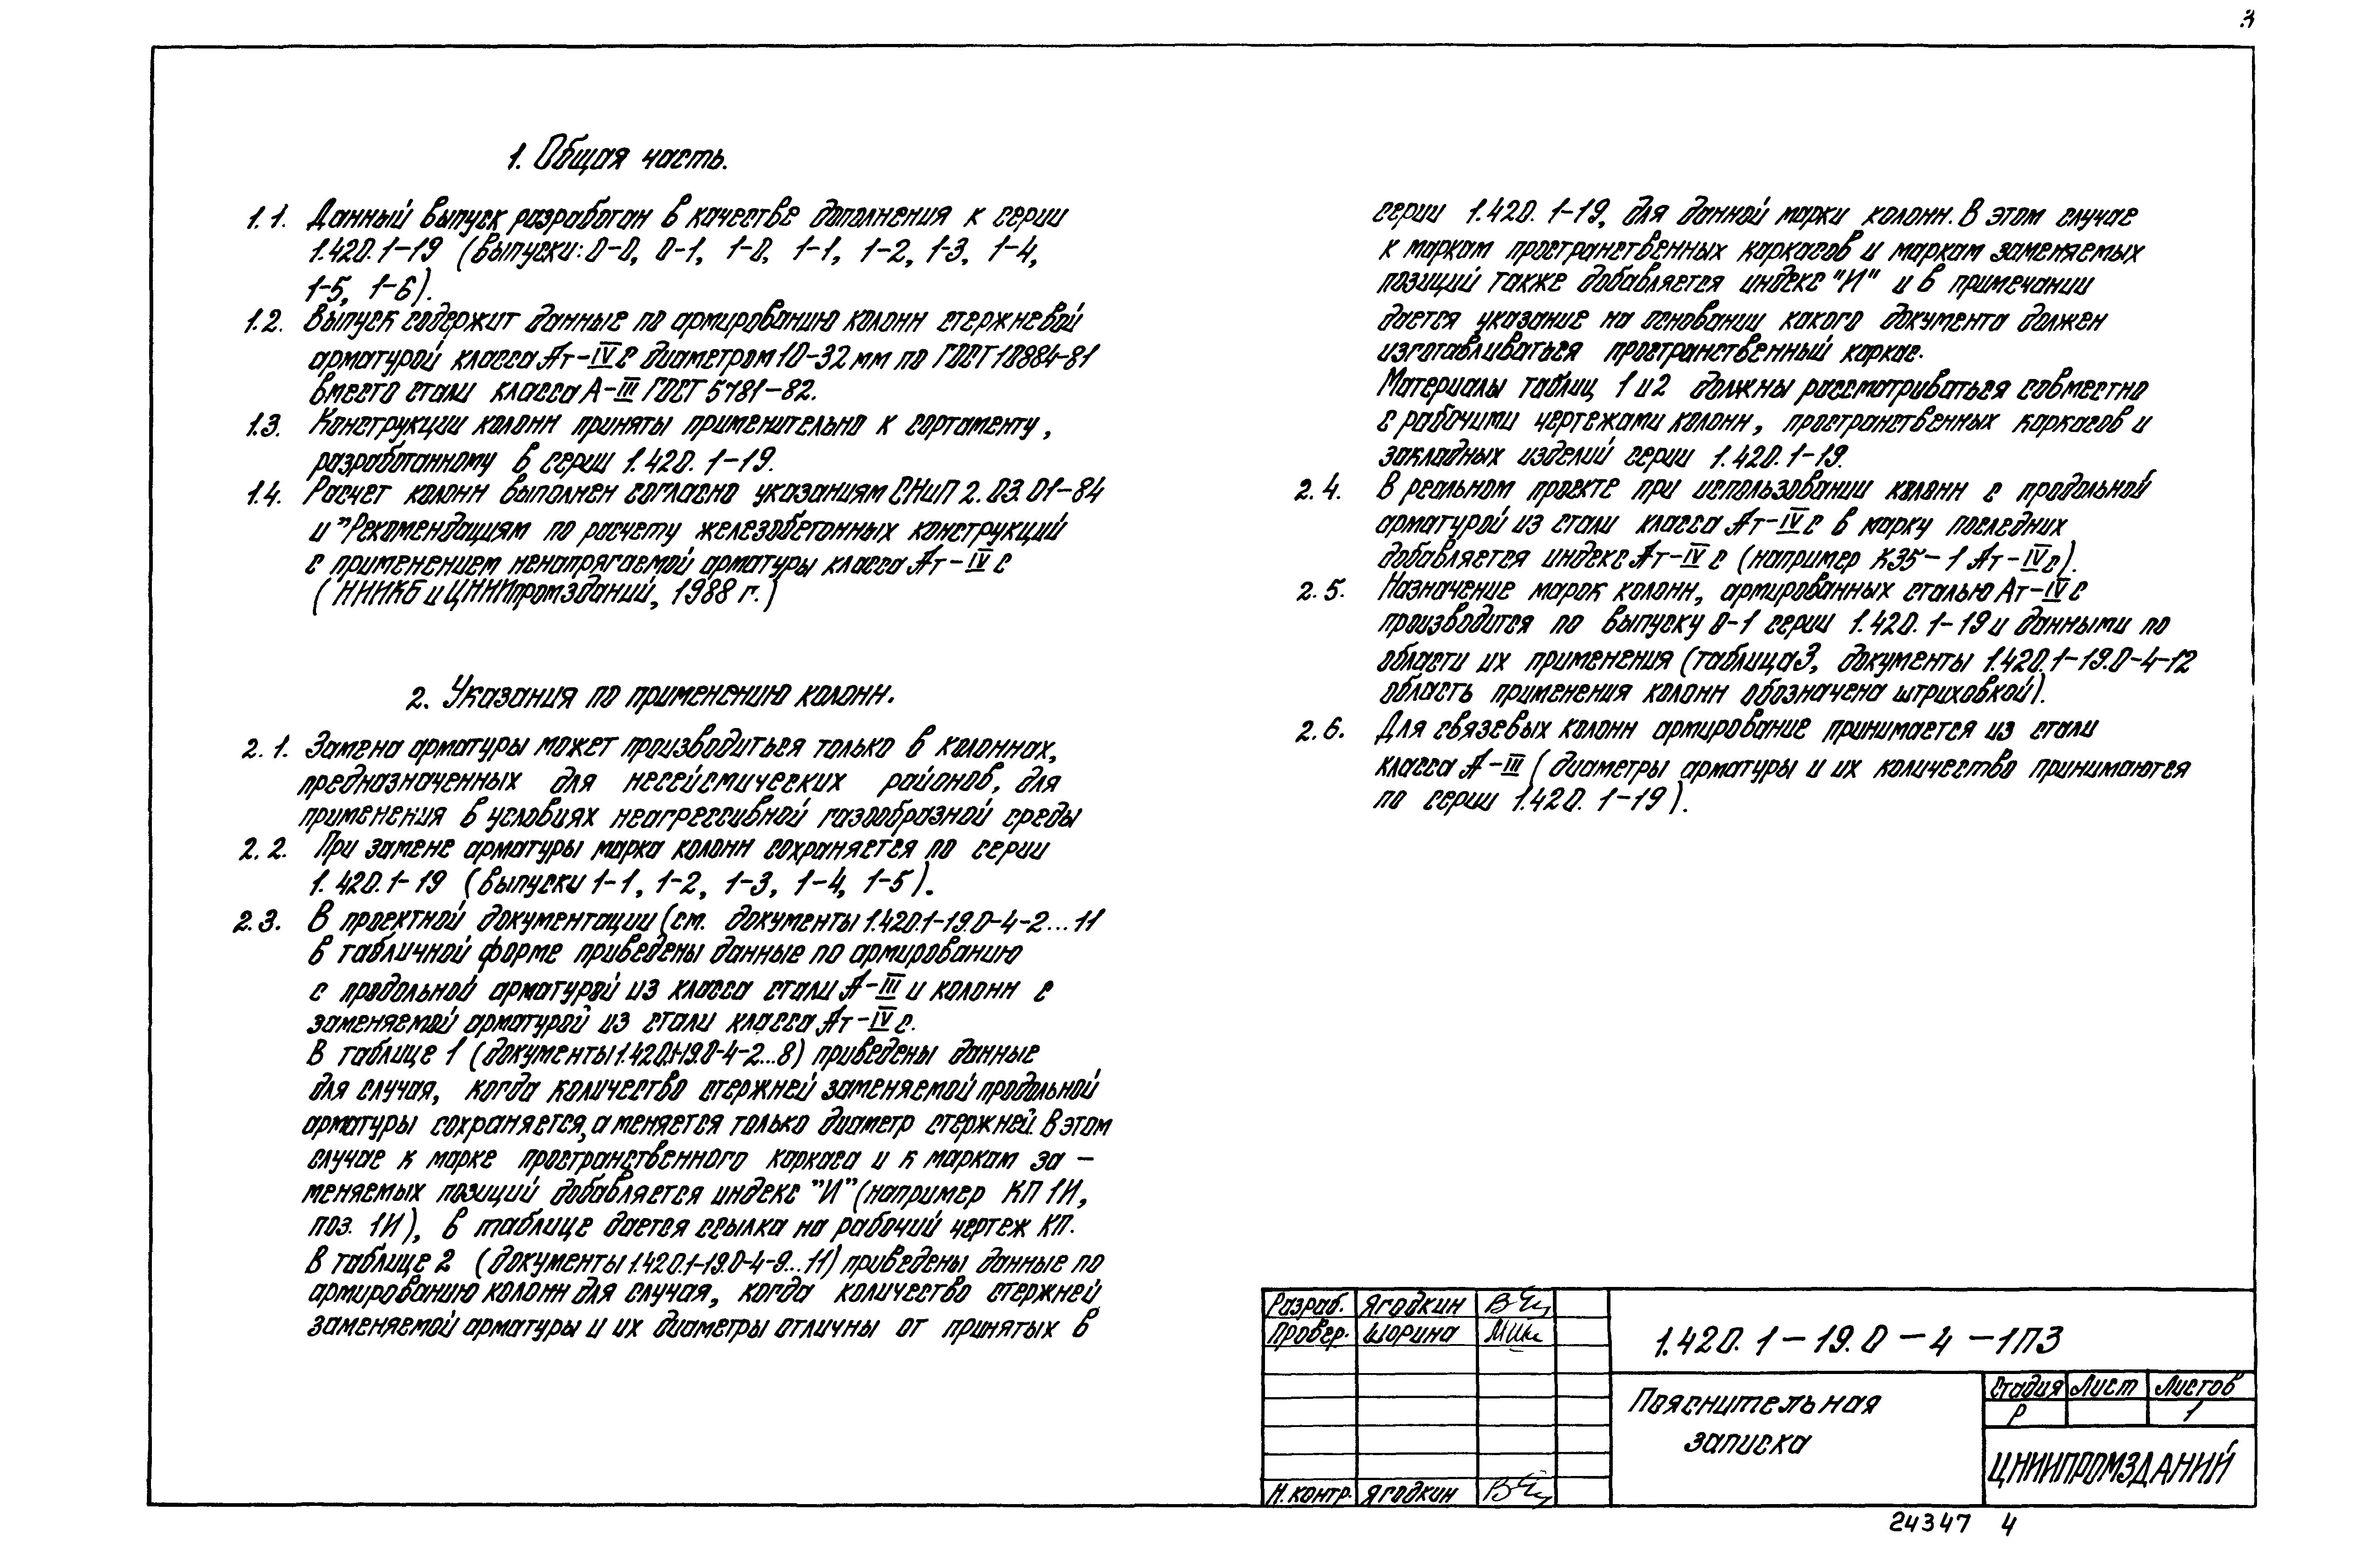 3
1. Общая часть.
1.1. Данный выпуск разработан в качестве дополнения к серии
1.420.1-19 (выпуски: 0-0, 0-1, 1-0, 1-1, 1-2, 1-3, 1-4,
1-5, 1-6).
1.2. Выпуск содержит данные по армированию колонн стержневой
арматурой класса Ат-IVС диаметром 10-32 мм по ГОСТ 10884-81
вместо стали класса А-III ГОСТ 5781-82.
1.3. Конструкции колонн приняты применительно к сортаменту,
разработанному в серии 1.420.1-19.
1.4. Расчет колонн выполнен согласно указаниям СНиП 2.03.01-84
и "Рекомендациям по расчету железобетонных конструкций
с применением ненапрягаемой арматуры класса Ат-IVС
(НИИЖБ и ЦНИИпромзданий, 1988 г.)
2. Указания по применению колонн.
2.1. Замена арматуры может производиться только в колоннах,
предназначенных для несейсмических районов, для
применения в условиях неагрессивной газообразной среды
2.2. При замене арматуры марка колонн сохраняется по серии
1.420.1-19 (выпуски 1-1, 1-2, 1-3, 1-4, 1-5).
2.3. В проектной документации (см. документы 1.420.1-19.0-4-2...11
в табличной форме приведены данные по армированию
с продольной арматурой из класса стали А-III и колонн с
заменяемой арматурой из стали класса Ат-IVС.
В таблице 1 (документы 1.420.1-19.0-4-2...8) приведены данные
для случая, когда количество стержней заменяемой продольной
арматуры сохраняется, а меняется только диаметр стержней. В этом
случае к марке пространственного каркаса и к маркам за-
меняемых позиций добавляется индекс "И" (например КП 1И,
поз. 1И), в таблице дается ссылка на рабочий чертеж КП.
В таблице 2 (документы 1.420.1-19.0-4-9...11) приведены данные по
армированию колонн для случая, когда количество стержней
заменяемой арматуры и их диаметры отличны от принятых в
серии 1.420.1-19, для данной марки колонн. В этом случае
к маркам пространственных каркасов и маркам заменяемых
позиций также добавляется индекс "И" и в примечании
дается указание на основании какого документа должен
изготавливаться пространственный каркас.
Материалы таблиц 1 и 2 должны рассматриваться совместно
с рабочими чертежами колонн, пространственных каркасов и
закладных изделий серии 1.420.1-19.
2.4. В реальном проекте при использовании колонн с продольной
арматурой из стали класса Ат-IVС в марку последних
добавляется индекс Ат-IVС (например К35-1 Ат-IVС).
2.5. Назначение марок колонн, армированных сталью Ат-IVС
производится по выпуску 0-1 серии 1.420.1-19 и данными по
области их применения (таблица 3, документы 1.420.1-19.0-4-12
область применения колонн обозначена штриховкой).
2.6. Для связевых колонн армирование принимается из стали
класса А-III (диаметры арматуры и их количество принимаются
по серии 1.420.1-19).
Разраб. Ягодкин
Провер. Шорина
Н.контр. Ягодкин
1.420.1-19.0-4-1ПЗ
Пояснительная
записка
Стадия Лист Листов
Р 1
ЦНИИПРОМЗДАНИЙ
24347 4